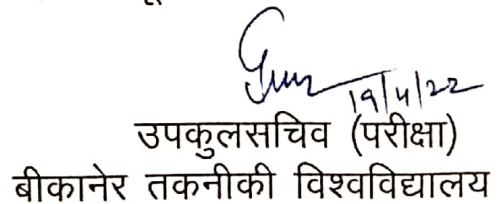 19/4/22
उपकुलसचिव (परीक्षा)
बीकानेर तकनीकी विश्वविद्यालय